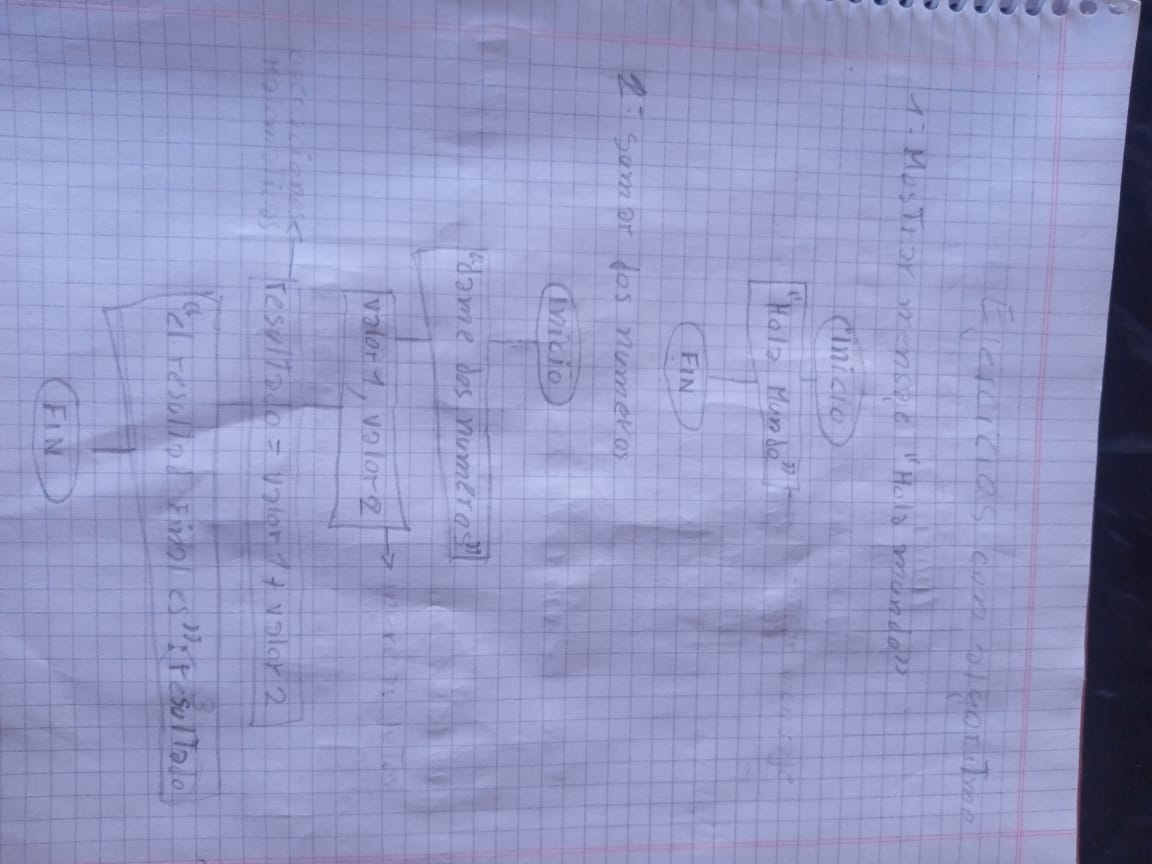 Ejercicios con algoritmo
1: Mostrar mensaje "Hola mundo"
Inicio
"Hola Mundo"
FIN
2: Sumar dos numeros
Inicio
"dame dos numeros"
valor1, valor2
resultado = valor1 + valor2
"el resultad final es": resultado
FIN